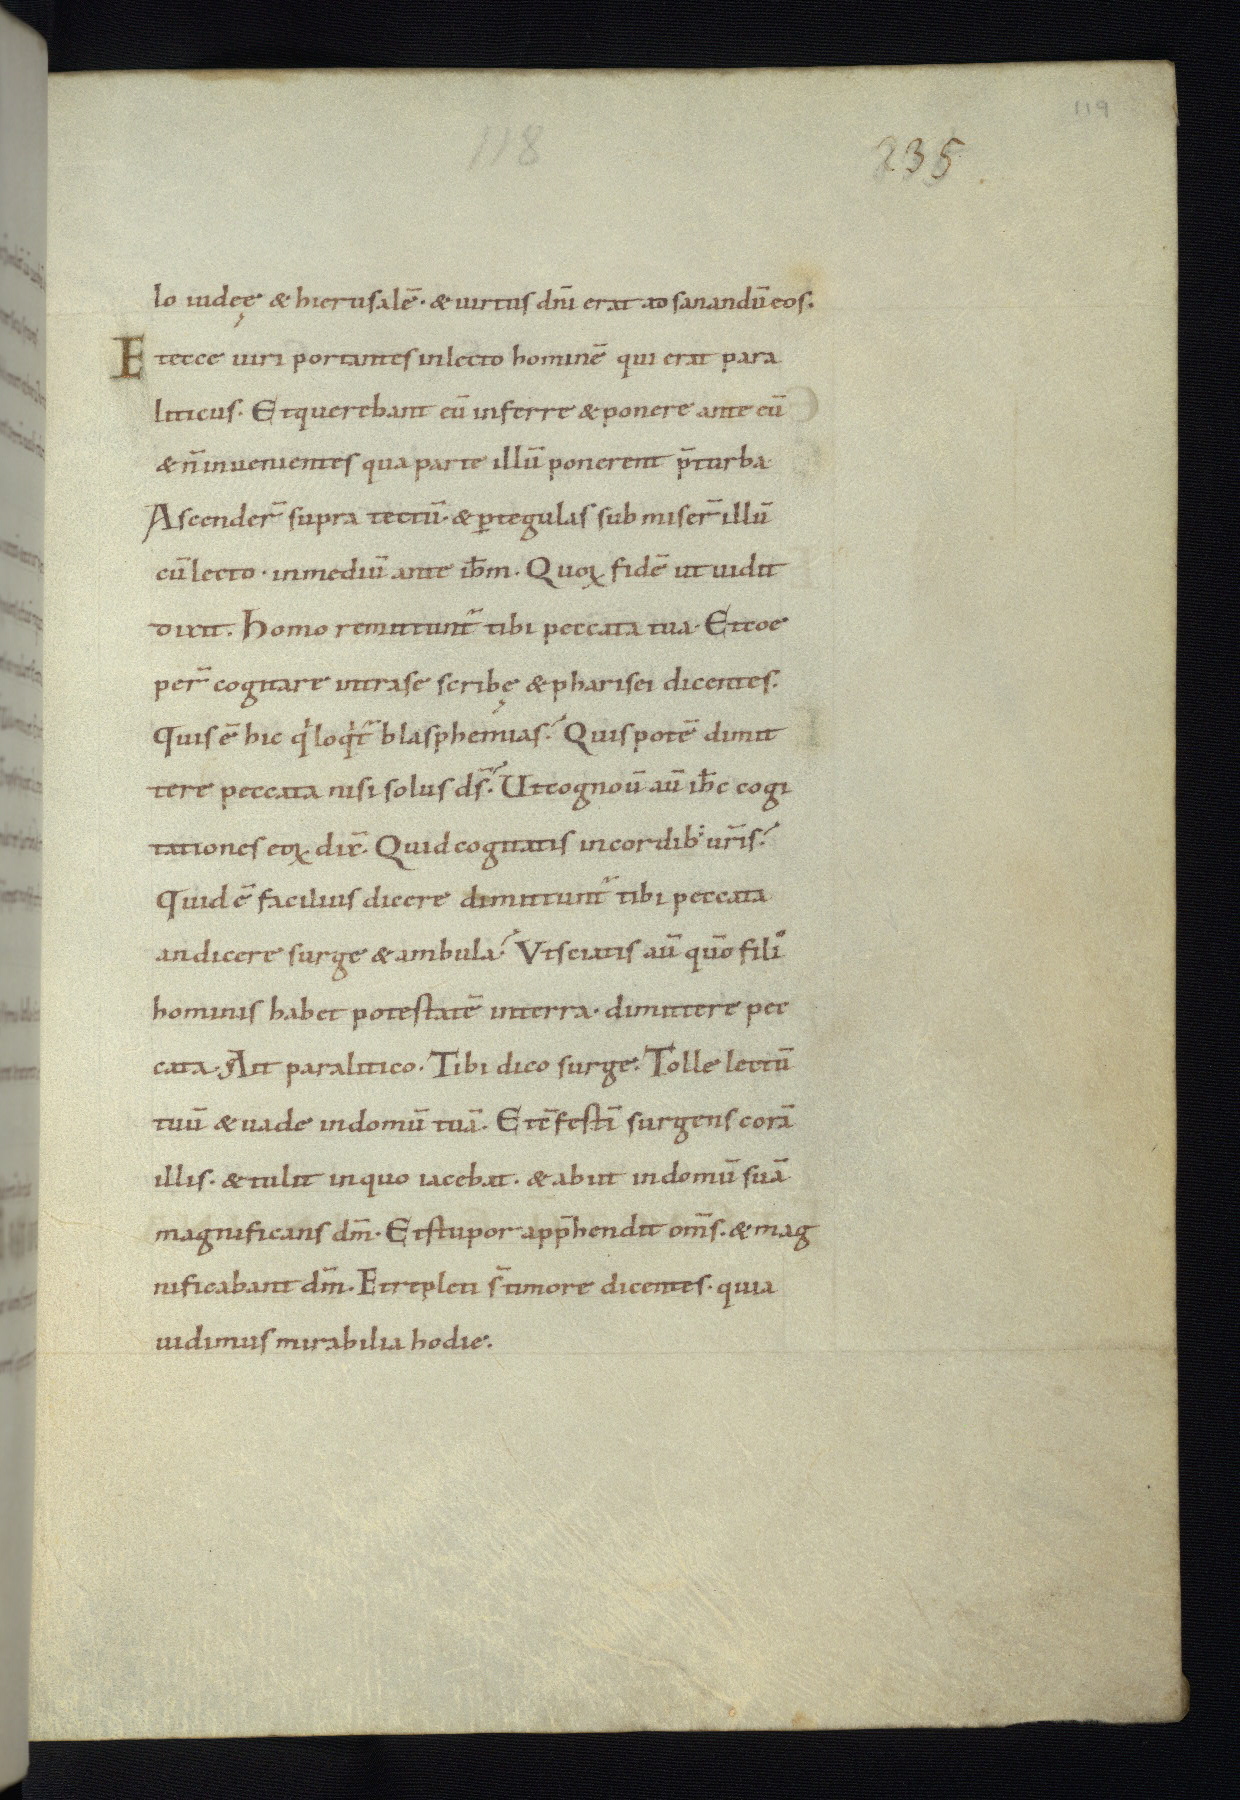 119
118
235
lo iudeę & hierusalē· & uirtus dn̄i erat ad sanandū eos.
Et ecce uiri portantes in lecto hominē qui erat para
liticus. Et querebant eū inferre & ponere ante eū
& n̄ inuenientes qua parte illū ponerent p̄ turba
Ascender̄ supra tectū· & ꝑ tegulas submiser̄ illū
cū lecto· in mediū ante ihm̄. Quoꝝ fidē ut uidit
dixit. Homo remittunt᷑ tibi peccata tua· Et coe
per̄ cogitare intra se scribę & pharisei dicentes.
Quis ē hic q' loq't᷑ blasphemias? Quis potē dimit
tere peccata nisi solus ds̄? Ut cognou̅ au̅ ihc̄ cogi
tationes eoꝝ dix̄. Quid cogitatis in cordib; ur̄is?
Quid ē facilius dicere dimittunt᷑ tibi peccata
an dicere surge & ambula? Vt sciatis au̅ quo̅ filiꝰ
hominis habet potestatē in terra· dimittere pec
cata· Ait paralitico. Tibi dico surge. Tolle lectū
tuū & uade in domū tuā. Et cōfestī surgens corā
illis. & tulit in quo iacebat. & abiit in domū suā
magnificans dm̄. Et stupor app̄hendit om̄s. & mag
nificabant dm̄. Et repleti s̄ timore dicentes· quia
uidimus mirabilia hodie.